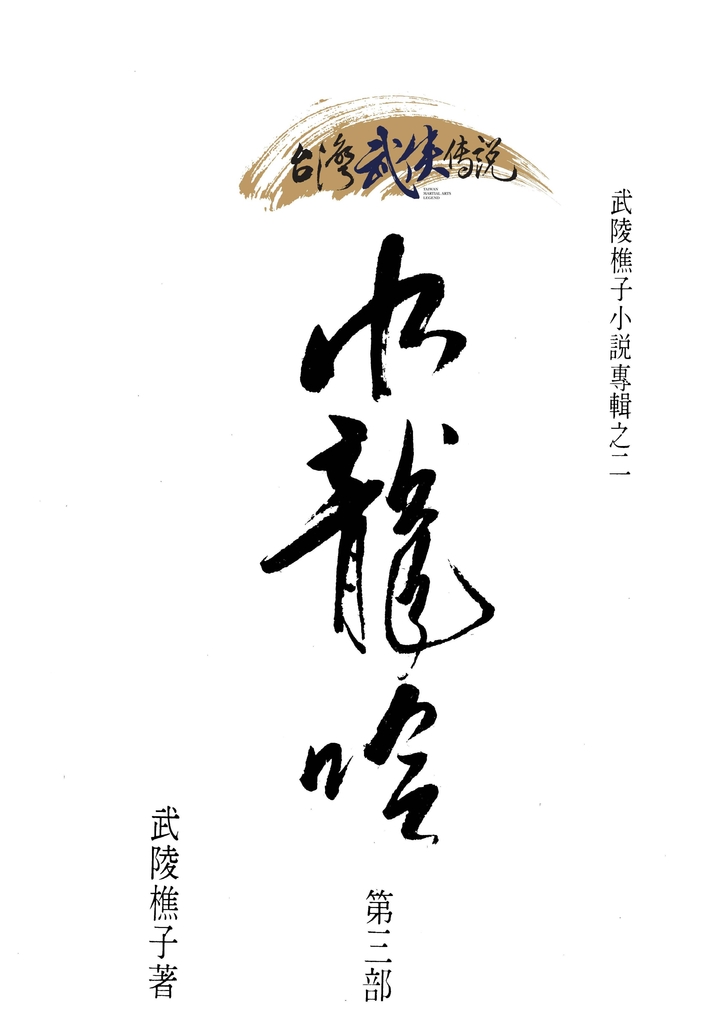 台灣武俠传説
TAIWAN
MARTIAL ARTS
LEGEND
武陵樵子小説專輯之二
水龍吟
第三部
武陵樵子著